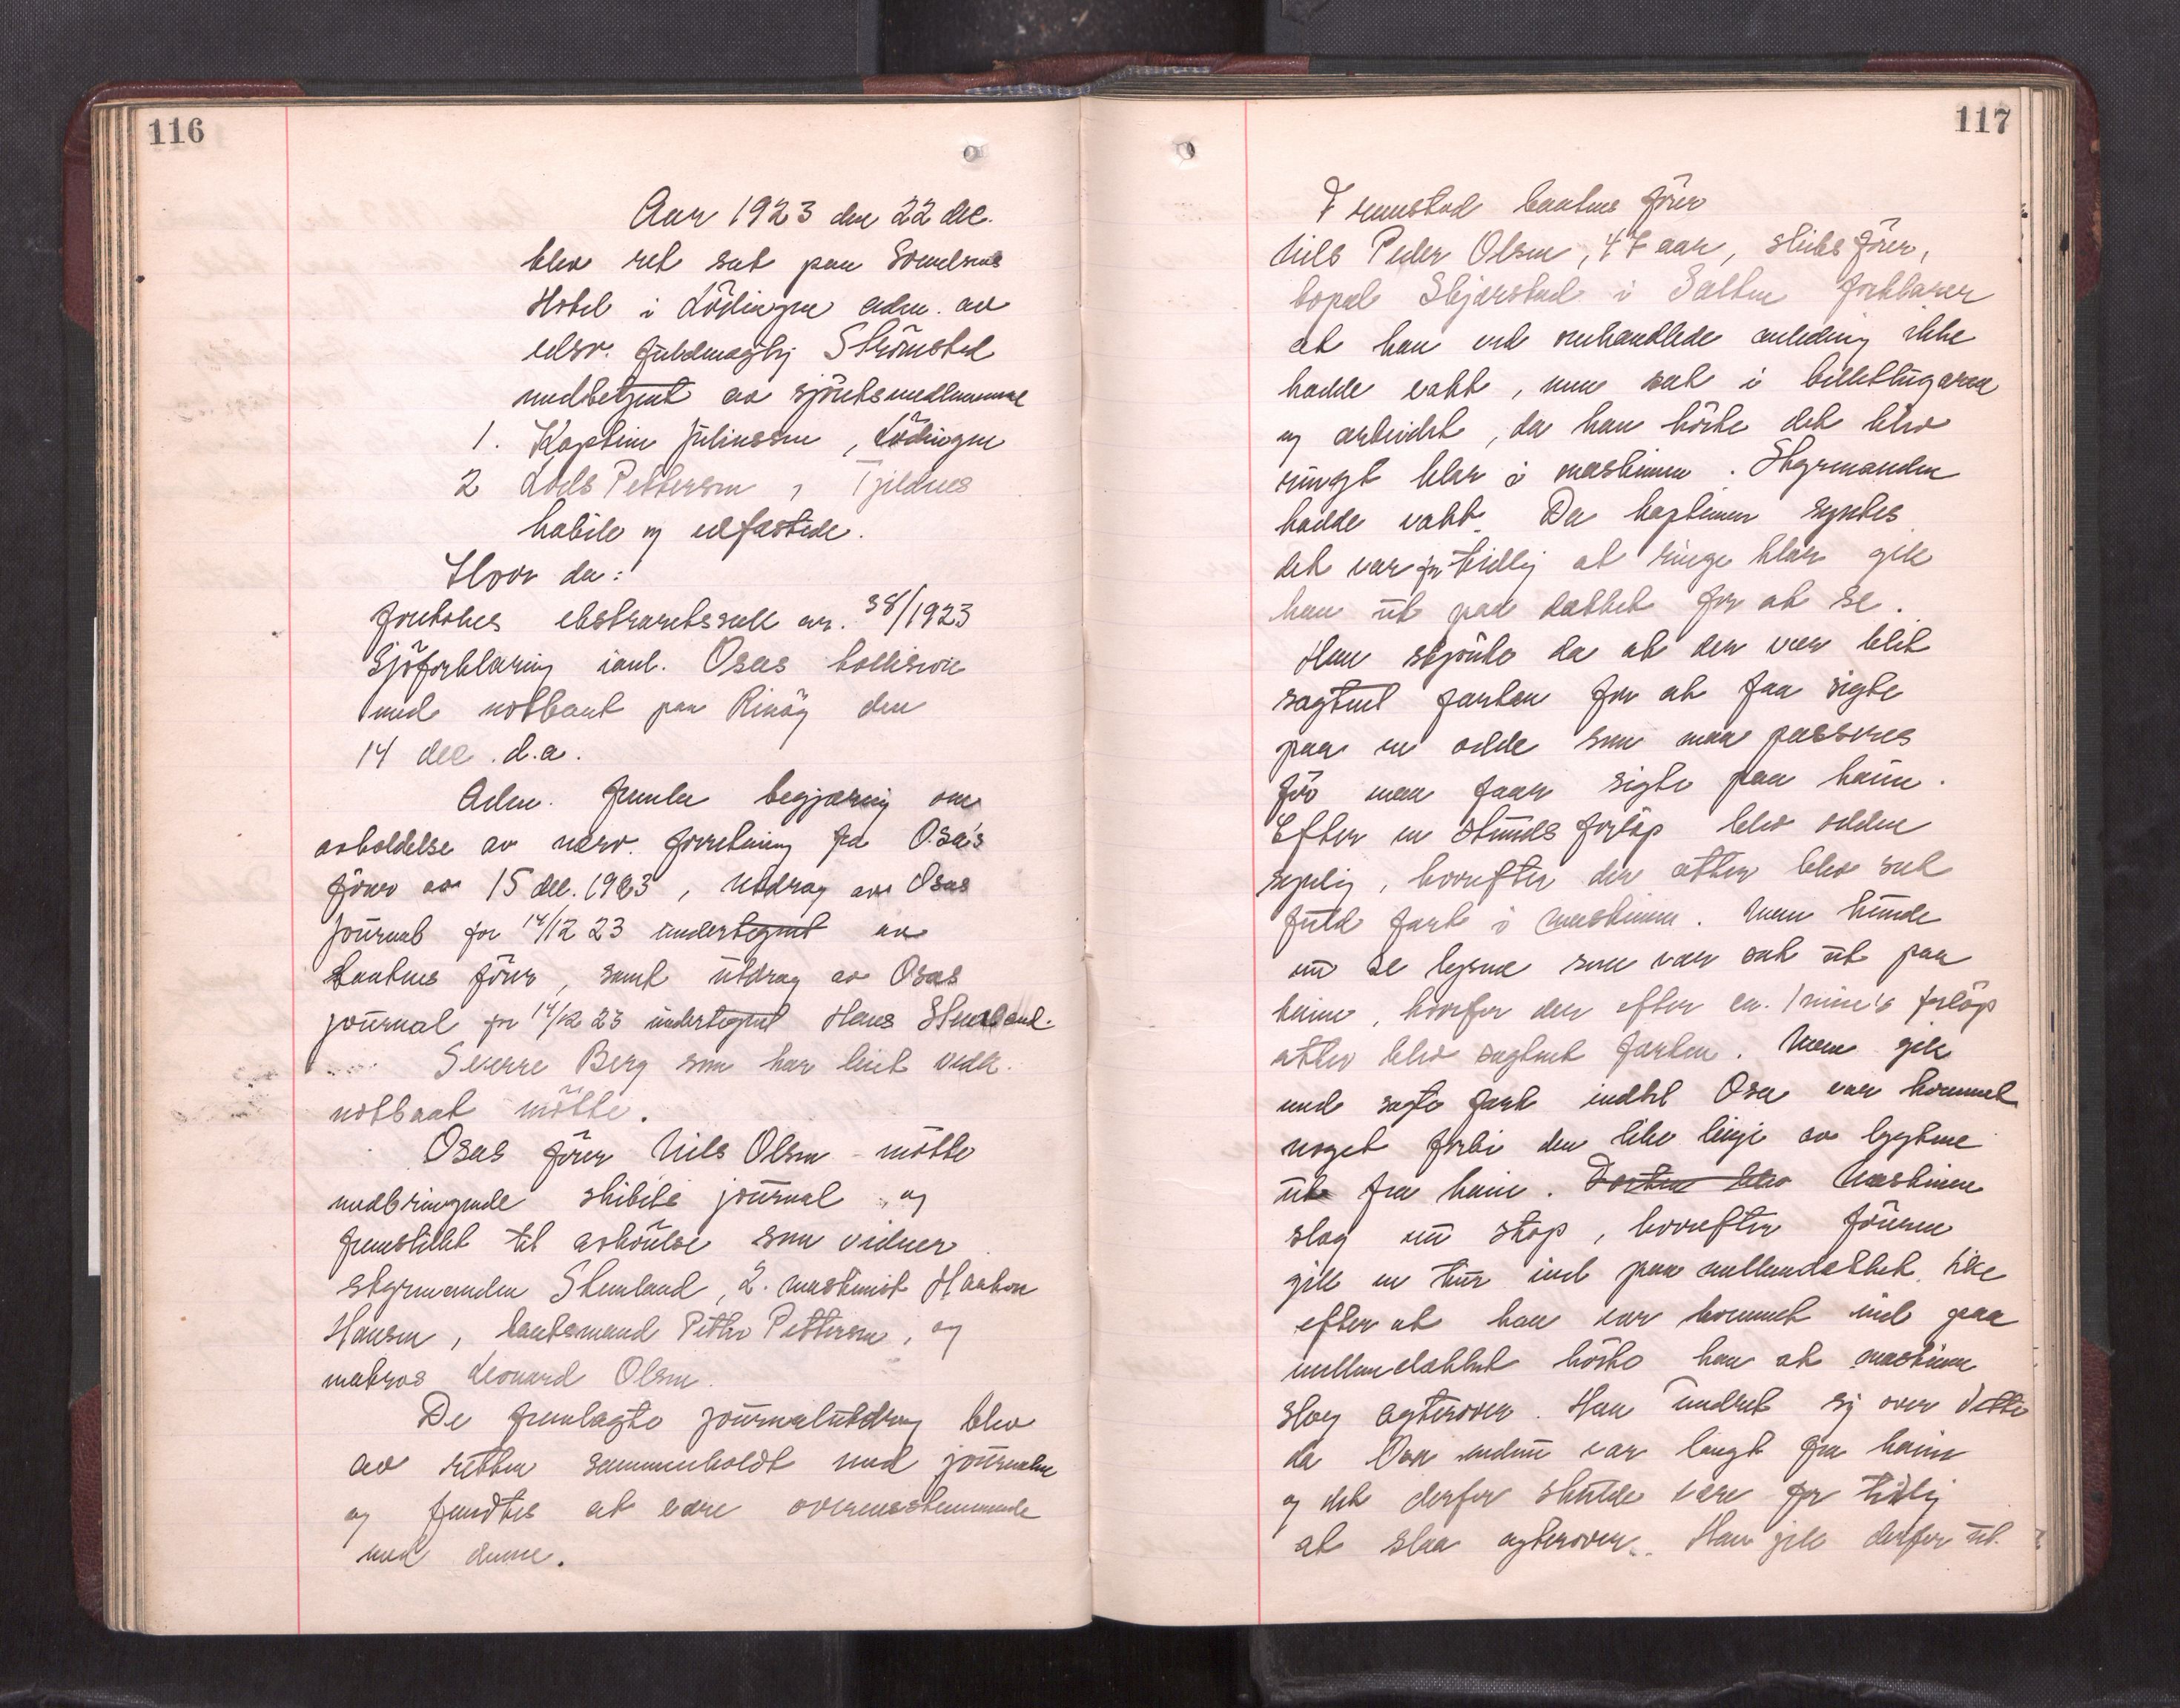 116
Aar 1923 den 22 dec.
blev ret sat paa
Hotel i Lödingen adm. av
edsv. fuldmægtig Strömsted
medbetjent av sjöretsmedlemmene
1. Kaptein Juliussen, Lödingen
2 Lods Pettersen, Tjeldnes
habile og edfæstede.
Hvor da:
foretokes ekstraretssak nr. 38/1923
Sjöforklaring i anl. Osas kollision
med notbaat paa Rinöy den
14 dec. d.a.
Adm. fremla begjæring om
avholdelse av nærv. forretning fra Osa's
förer av 15 dec. 1923, utdrag av Osas
journal for 14/12 23 undertegnet av
baatens förer, samt utdrag av Osas
journal for 14/12 23 undertegnet Hans Stenland.
Sverre Berg som har leiet vedk.
notbaat mötte.
Osas förer Nils Olsen mötte
medbringende skibets journal og
fremstillet til avhörelse som vidner
styrmanden Stenland, 2. maskinist Haakon
Hansen, baatsmand Petter Pettersen, og
matros Leonard Olsen.
De fremlagte journalutdrag blev
av retten sammenholdt med journalen
og fandtes at være overensstemmende
med denne.
117
Fremstod baatens förer
Nils Peder Olsen, 47 aar, skibsförer,
bopæl Skjerstad i Salten forklarer
at han ved omhandlede anledning ikke
hadde vakt, men sat i billetlugaren
og arbeidet, da han hörte det blev
ringt klar i maskinen. Styrmanden
hadde vakt. Da kapteinen syntes
det var for tidlig at ringe klar gik
han ut paa dækket for at se.
Han skjönte da at der var blit
sagtnet farten for at faa sigte
paa en odde som maa passeres
för man faar sigte paa kaien.
Efter en stunds forlöp blev odden
synlig, hvorefter der atter blev sat
fuld fart i maskinen. Man kunde
nu se lysene som var sat ut paa
kaien, hvorfor der efter ca. 1 min's forlöp
atter blev sagtnet farten. Man gik
med sagte fart indtil Osa var kommet
noget forbi den like linje av lygtene
ut fra kaien. Farten blev Maskinen
slog nu stop, hvorefter föreren
gik en tur ind paa mellemdækket. Like
efter at han var kommet ind paa
mellemdækket hörte han at maskinen
slog agterover. Han undret sig over dette
da Osa endnu var langt fra kaien
og det derfor skulde være for tidlig
at slaa agterover. Han gik derfor ut